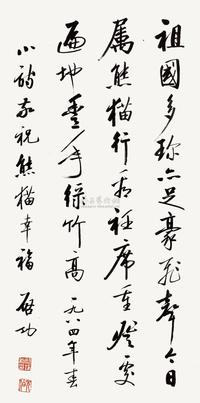 祖國多珍亦足豪飛聲今日
屬熊貓行看衽席重登處
遍地豐年綠竹高一九八四年春
小詩敬祝熊貓幸福 啓功